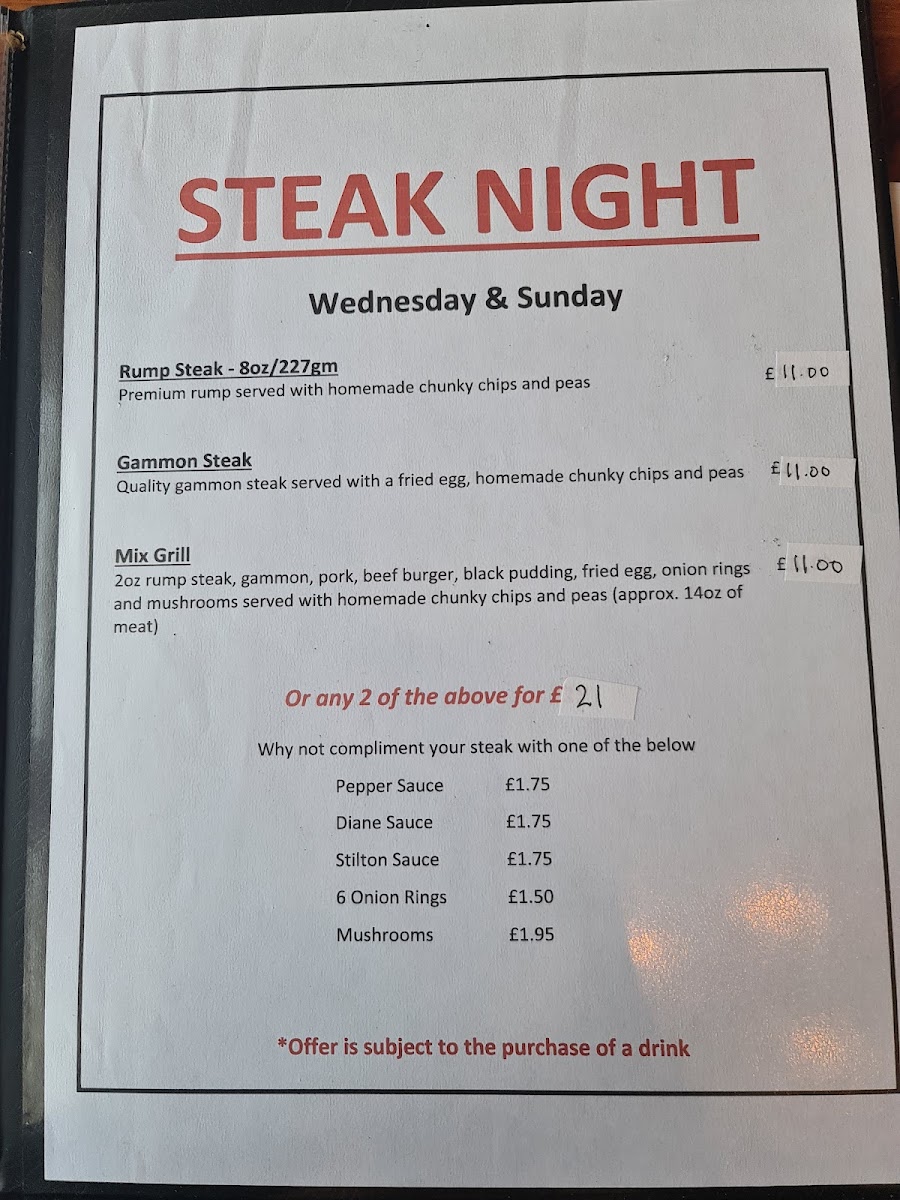 STEAK NIGHT
Wednesday & Sunday
Rump Steak - 8oz/227gm
Premium rump served with homemade chunky chips and peas
£11.00
Gammon Steak
Quality gammon steak served with a fried egg, homemade chunky chips and peas
£11.00
Mix Grill
2oz rump steak, gammon, pork, beef burger, black pudding, fried egg, onion rings
and mushrooms served with homemade chunky chips and peas (approx. 14oz of
meat)
£11.00
Or any 2 of the above for £ 21
Why not compliment your steak with one of the below
Pepper Sauce £1.75
Diane Sauce £1.75
Stilton Sauce £1.75
6 Onion Rings £1.50
Mushrooms £1.95
*Offer is subject to the purchase of a drink